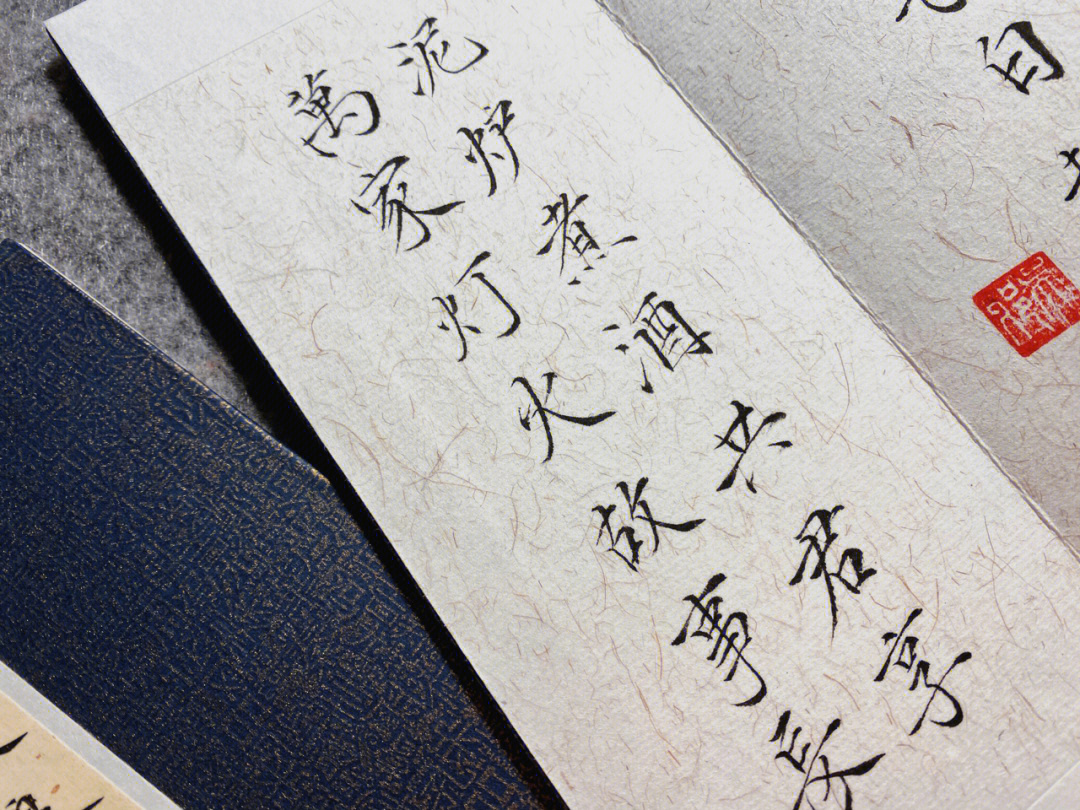 泥炉煮酒共君享
萬家灯火故事长